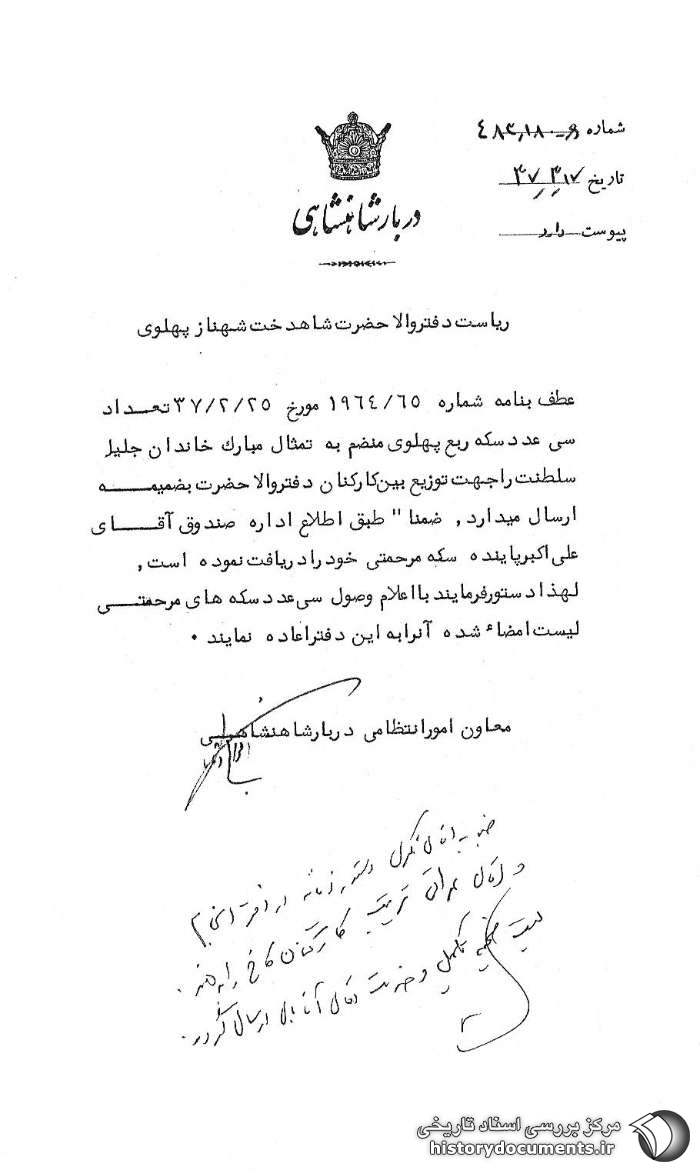 شماره
تاریخ
پیوست دارد
دربار شاهنشاهی
ریاست دفتر والاحضرت شاهدخت شهناز پهلوی
عطف بنامه شماره ۱۹٦٤/٦٥ مورخ ۳۷/۲/۲۵ تعداد
سی عدد سکه ربع پهلوی منضم به تمثال مبارک خاندان جلیل
سلطنت را جهت توزیع بین کارکنان دفتر والاحضرت بضمیمه
ارسال میدارد, ضمنا" طبق اطلاع اداره صندوق آقای
علی اکبر پاینده سکه مرحمتی خود را دریافت نموده است,
لهذا دستور فرمایند با اعلام وصول سی عدد سکه های مرحمتی
لیست امضاء شده آنرا به این دفتر اعاده نمایند ۰
معاون امور انتظامی دربار شاهنشاهی
کارکنان کاخ را
لیست تکمیل و
مرکز بررسی اسناد تاریخی
historydocuments.ir